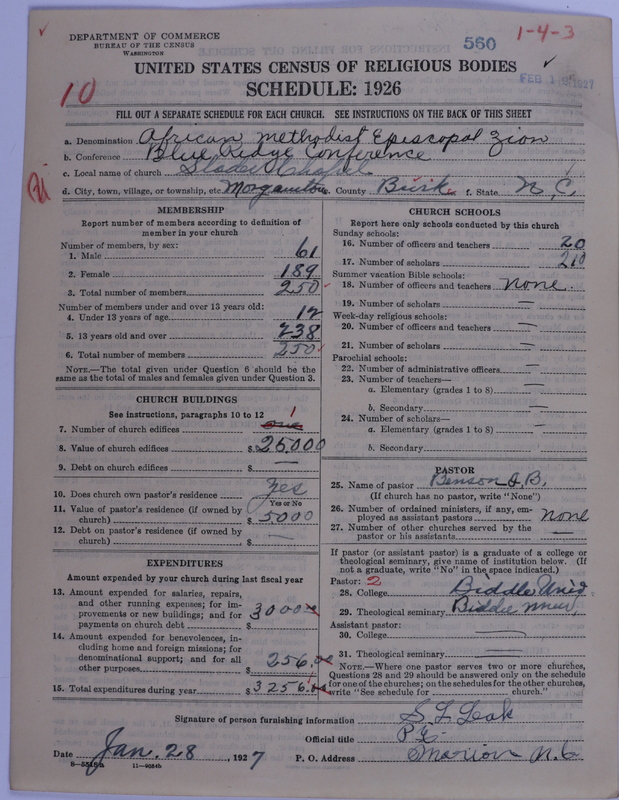 DEPARTMENT OF COMMERCE
BUREAU OF THE CENSUS
WASHINGTON
560
1-4-3
UNITED STATES CENSUS OF RELIGIOUS BODIES
FEB 1 1927
SCHEDULE: 1926
10
FILL OUT A SEPARATE SCHEDULE FOR EACH CHURCH. SEE INSTRUCTIONS ON THE BACK OF THIS SHEET
a. Denomination African Methodist Episcopal Zion
b. Conference Blue Ridge Conference
c. Local name of church Slades Chapel
d. City, town, village, or township, etc. Morganton e. County Burke f. State N.C.
MEMBERSHIP
Report number of members according to definition of
member in your church
Number of members, by sex:
1. Male 61
2. Female 189
3. Total number of members 250
Number of members under and over 13 years old:
4. Under 13 years of age 12
5. 13 years old and over 238
6. Total number of members 250
NOTE.—The total given under Question 6 should be
the same as the total of males and females given under Question 3.
CHURCH BUILDINGS
See instructions, paragraphs 10 to 12
7. Number of church edifices one 1
8. Value of church edifices $ 25,000
9. Debt on church edifices $ —
10. Does church own pastor's residence Yes
Yes or No
11. Value of pastor's residence (if owned by
church) $ 5000
12. Debt on pastor's residence (if owned by
church) $ —
EXPENDITURES
Amount expended by church during last fiscal year
13. Amount expended for salaries, repairs,
and other running expenses; for im-
provements or new buildings; and for
payments on church debt $ 3000
14. Amount expended for benevolences, in-
cluding home and foreign missions; for
denominational support; and for all
other purposes $ 256.00
15. Total expenditures during year $ 3256.00
CHURCH SCHOOLS
Report here only schools conducted by this church
Sunday schools:
16. Number of officers and teachers 20
17. Number of scholars 210
Summer vacation Bible schools:
18. Number of officers and teachers None.
19. Number of scholars —
Week-day religious schools:
20. Number of officers and teachers —
21. Number of scholars —
Parochial schools:
22. Number of administrative officers —
23. Number of teachers—
a. Elementary (grades 1 to 8) —
b. Secondary —
24. Number of scholars—
a. Elementary (grades 1 to 8) —
b. Secondary
PASTOR
25. Name of pastor Benson J.B.
(If church has no pastor, write "None")
26. Number of ordained ministers, if any, em-
ployed as assistant pastors none
27. Number of other churches served by the
pastor or his assistants —
If pastor (or assistant pastor) is a graduate of a college or
theological seminary, give name of institution below. (If
not a graduate, write "No" in the place indicated.)
Pastor: 2
28. College Biddle Univ.
29. Theological seminary Biddle Univ.
Assistant pastor:
30. College —
31. Theological seminary —
NOTE.—Where one pastor serves two or more churches,
Questions 28 and 29 should be answered only on the schedule
for one of the churches; on the schedules for the other churches,
write "See schedule for church."
Signature of person furnishing information S. L. Leak
Official title P.E.
Date Jan. 28, 1927 P. O. Address Marion N.C.
8-5518a 11-9664b